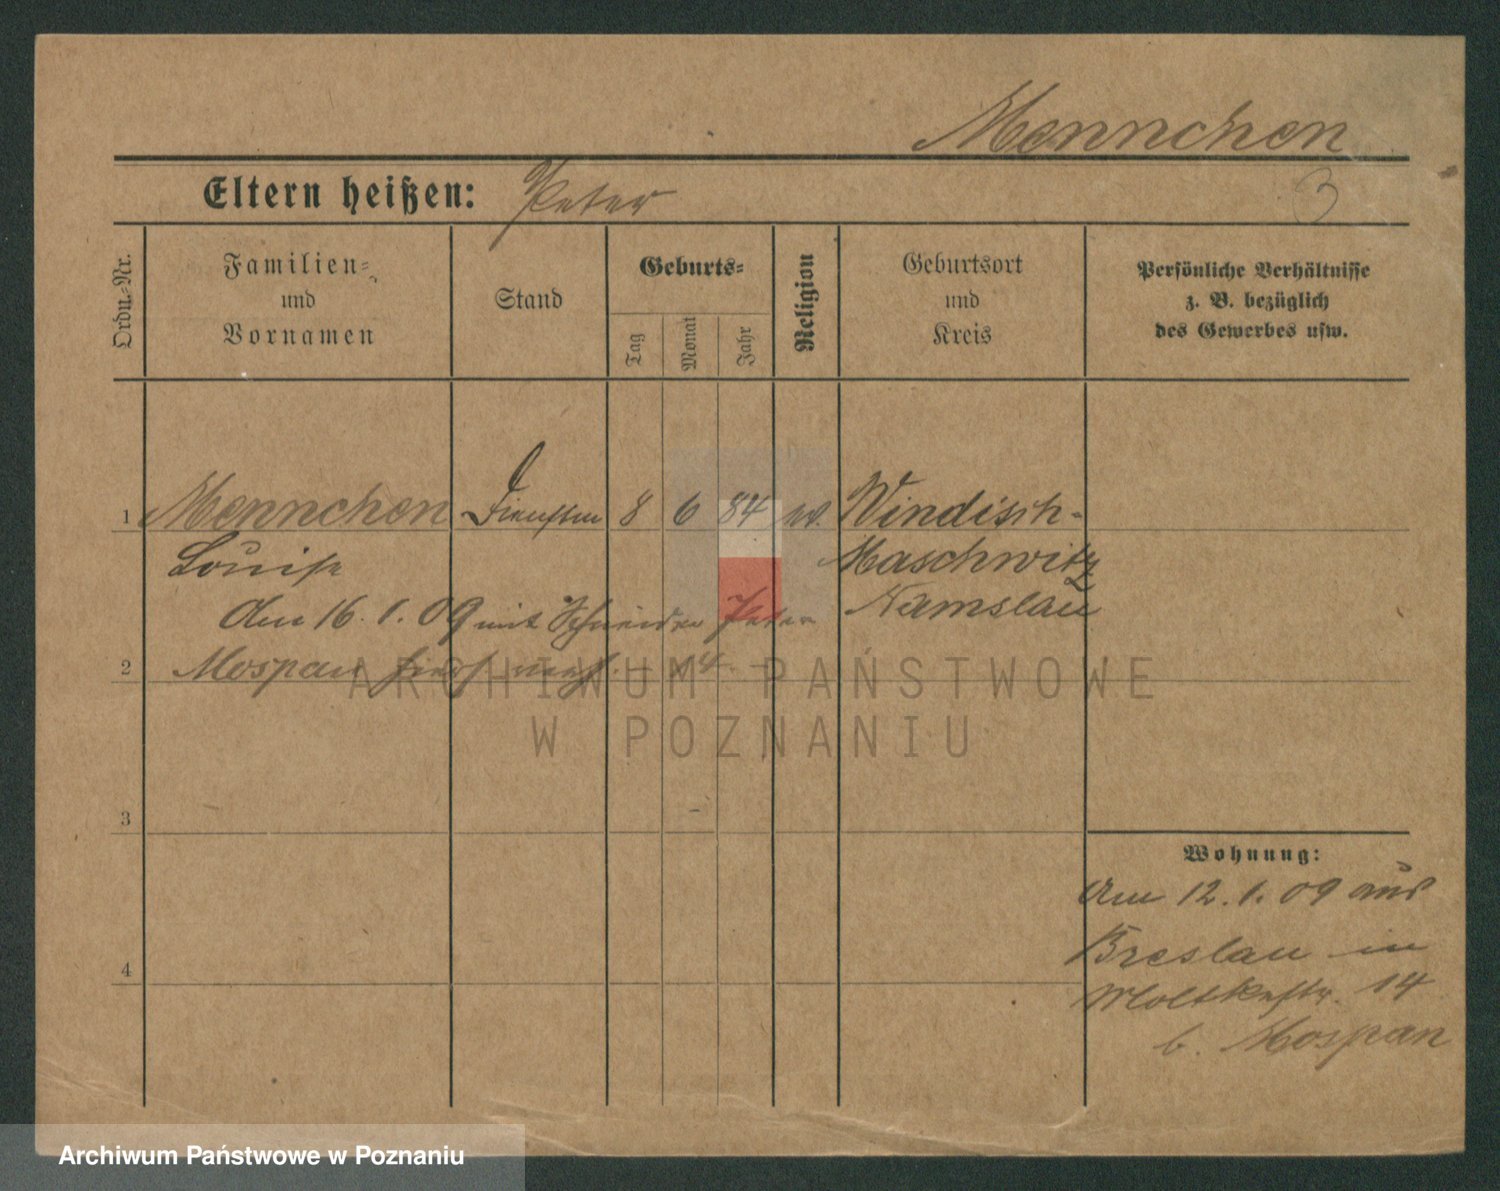 Mennchen
Eltern heißen: Peter
3
Ordn.-Nr.
Familien-
und
Vornamen
Stand
Geburts-
Tag
Monat
Jahr
Religion
Geburtsort
und
Kreis
Persönliche Verhältnisse
z. B. bezüglich
des Gewerbes usw.
1 Mennchen 8 6 84 ev. Windisch-
Louise Maschwitz
Namslau
Am 16.1.09 mit Schneider Peter
2 Mospan hier verh. 14
3
4
Wohnung:
Am 12.1.09 aus
Breslau in
Moltkestr. 14
b. Mospan
ARCHIWUM PAŃSTWOWE
W POZNANIU
Archiwum Państwowe w Poznaniu